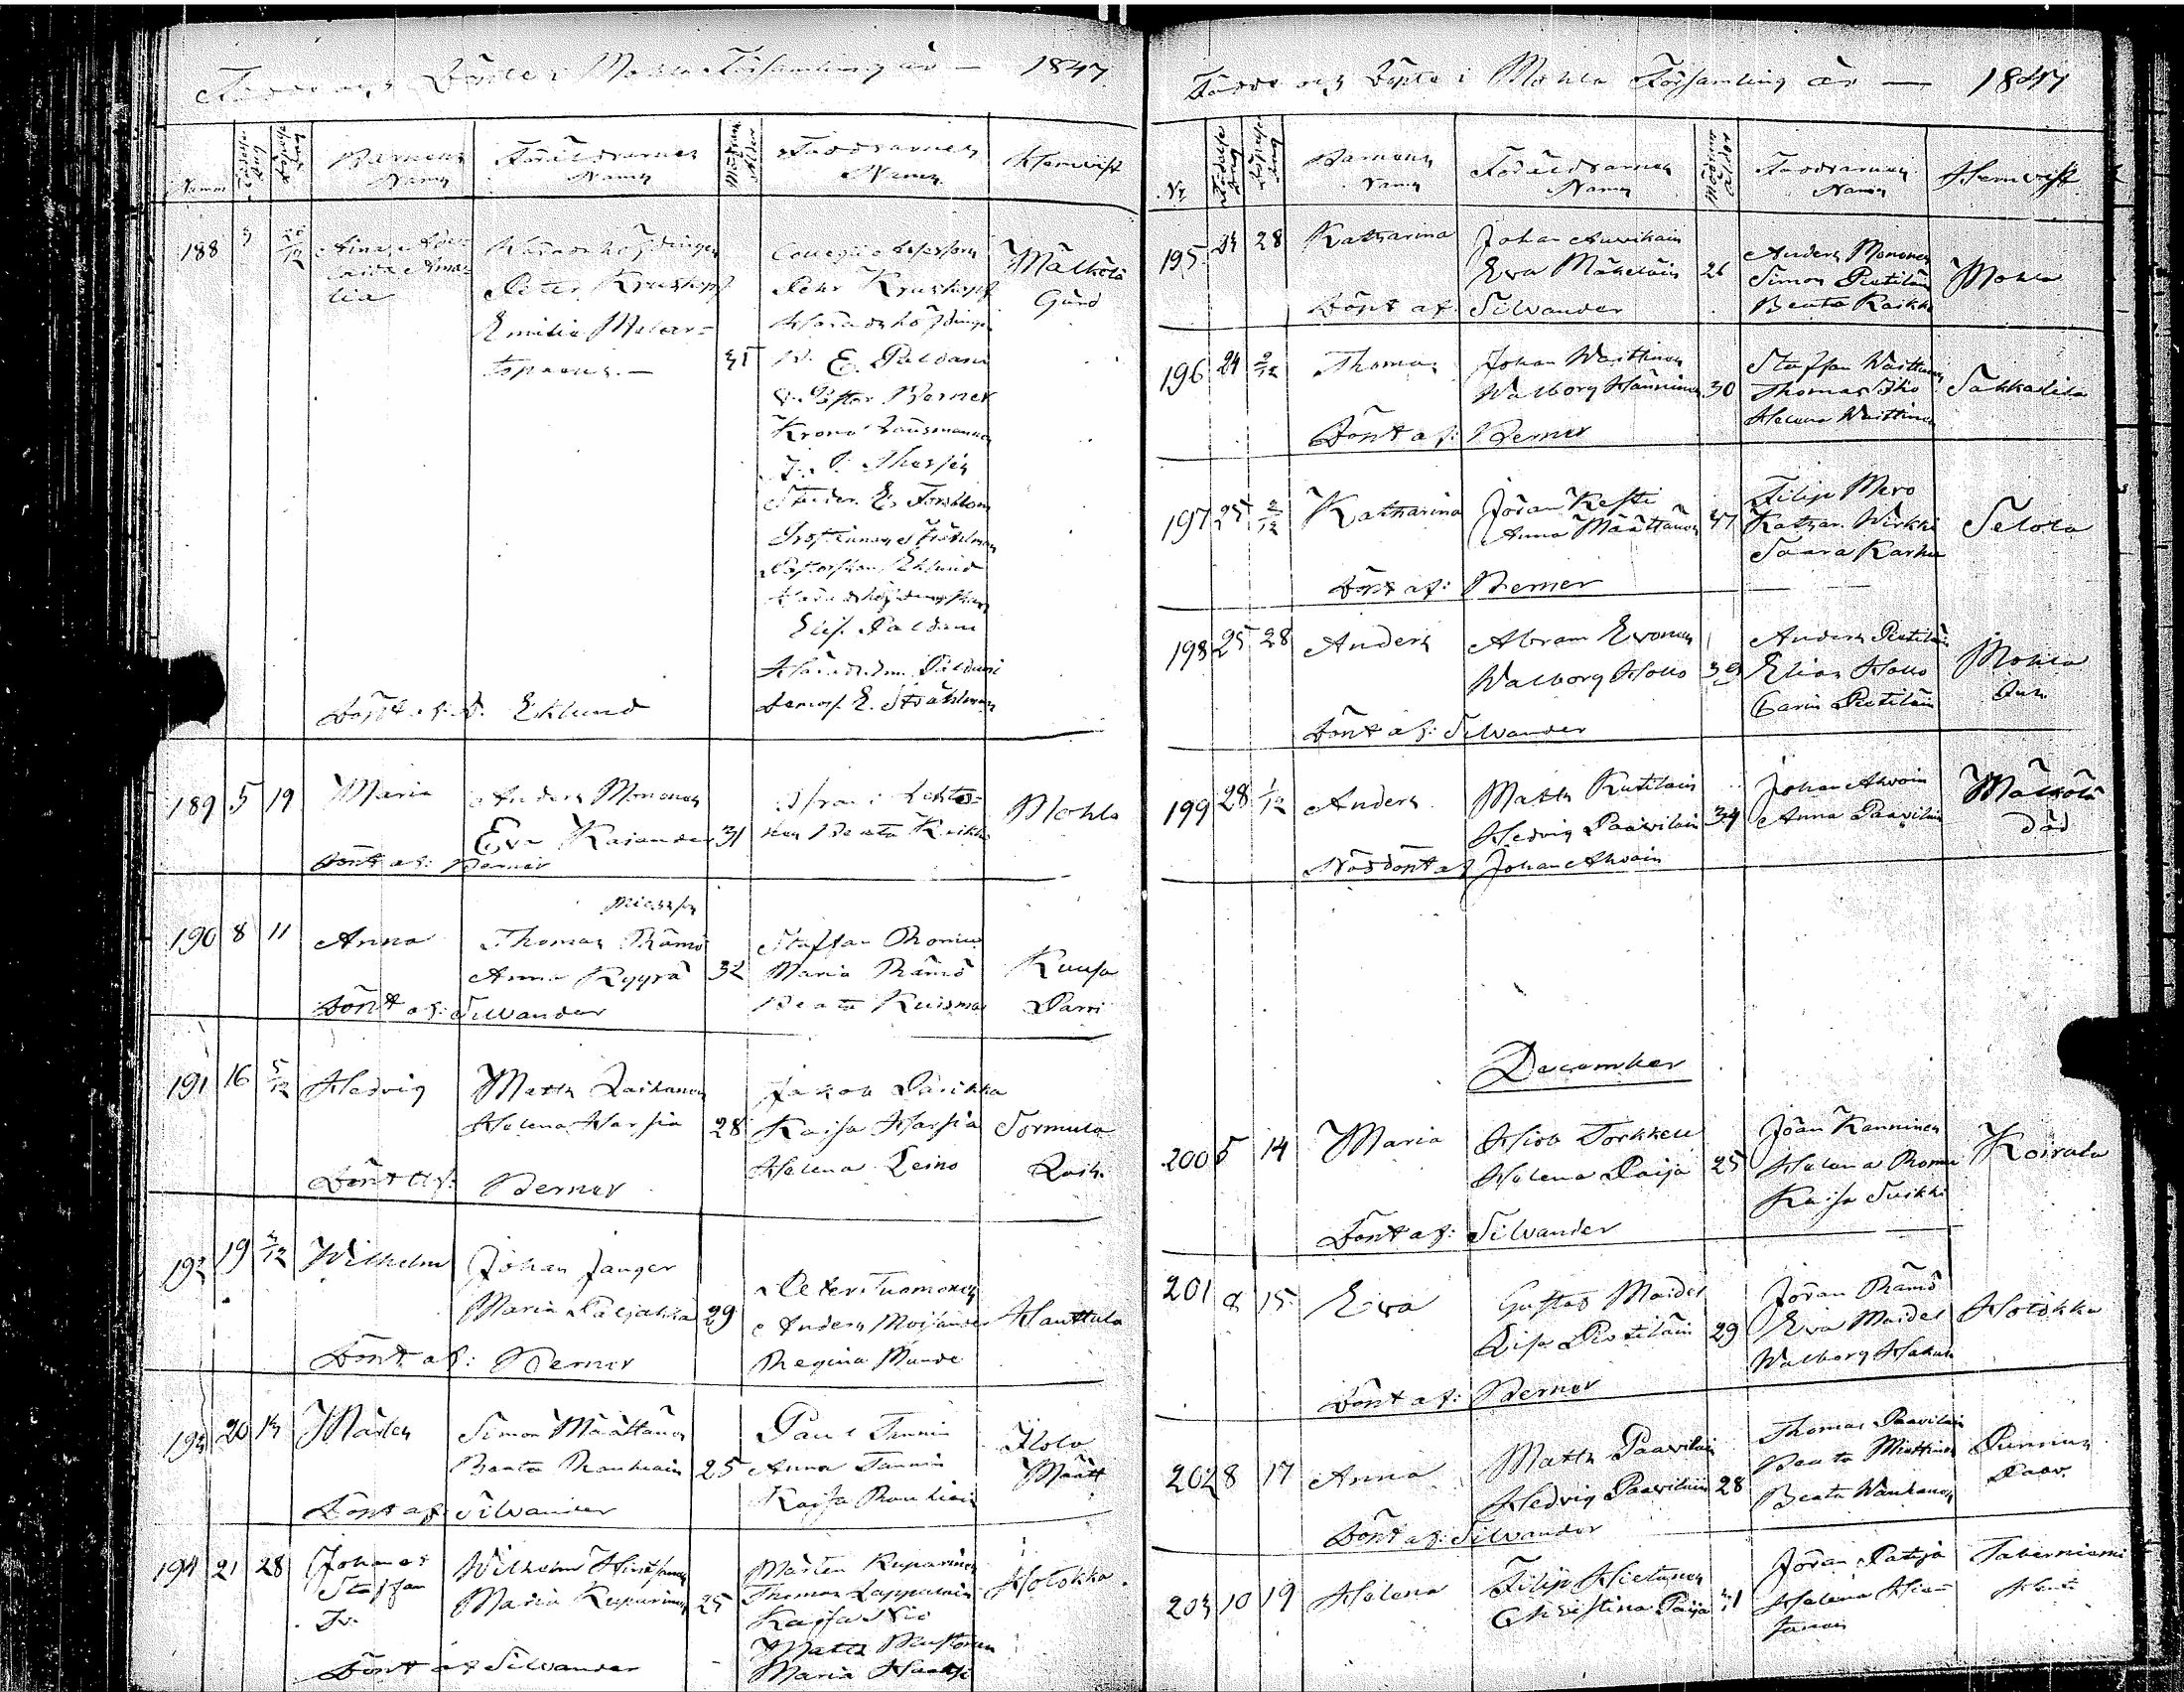 Födde och Döpte i Mohla Församling år — 1847
Numr
Födelse dag
Döpelse dag
Barnens Namn
Föräldrarnes Namn
Modrens Ålder
Faddrarnes Namn
Hemvist
188 3 26/12 Aina Ade=
laida Ama=
lia
Häradshöfdingen
Peter Kruskopf
Emilia Molan=
31
Collegii Assessorn
Pehr Kruskopf
Häradshöfding
E. Paldani
V. Pastor Berner
Krono Länsmannen
Thesjen
Studer. E. Forsblom
Pastorskan Eklund
Häradshöfdingskan
Elis. Paldani
Häradsdom. Paldani
Demois. E. Stråhlman
Mälkölä
Gård
Döpt af: Eklund
189 5 19 Maria
Anders Mononen
Eva Kajander 31
Beata Kaikko
Mohla
Döpt af: Berner
190 8 11 Anna
Thomas Rämö
Anna Kyyrä 32
Staffan
Maria Rämö
Beata Kuisma
Kuusa
Parri
Döpt af: Silvander
191 16 5/12 Hedvig
Matts Laihanen
Helena Harsia 28
Jakob Parikka
Kaisa Harsia
Helena Leino
Sormula
Laih.
Döpt af: Berner
192 19 Wilhelm
Johan Janger
Maria Paljakka 29
Peter Tuomonen
Anders Moisander
Regina Munde
Hauttula
Döpt af: Berner
193 20 Mårten
Simon Määttänen
Beata Rauhiain 25
Paul Tannin
Anna Tannin
Kaisa Rauhiain
Ilola
Määtt
Döpt af: Silvander
194 21 28 Johannes
Staffan
Tv.
Wilhelm
Maria Kuparinen 25
Mårten Kuparinen
Thomas Lappalain
Kaisa
Matts
Maria
Hotokka
Döpt af Silvander
Födde och Döpte i Mohla Församling år — 1847
Nr
Födelse dag
Döpelse dag
Barnens Namn
Föräldrarnes Namn
Modrens ålder
Faddrarnes Namn
Hemvist
195 23 28 Katharina
Johan Auvikain
Eva Mäkeläin 26
Anders Mononen
Simon Pietiläin
Beata Kaikko
Mohla
Döpt af Silvander
196 24 2/12 Thomas
Johan Waittinen
Walborg Hänninen 30
Staffan Waittinen
Thomas Iho
Helena Waittinen
Sakkalila
Döpt af: Berner
197 25 2/12 Katharina
Jöran Kesti
Anna Määttänen
Filip Mero
Kathar. Wirkki
Saara Karhu
Selola
Döpt af: Berner
198 25 28 Anders
Abram Evonen
Walborg Hollo 39
Anders Pietiläin
Elias Hollo
Carin Pietiläin
Mohla
Döpt af: Silvander
199 28 1/12 Anders
Matts Kutilain
Hedvig Paavilain 34
Johan Ahvoin
Anna Paavilain
Mälkölä
Död
Nöddöpt af Johan Ahvoin
December
200 5 14 Maria
Hiob Torkkeli
Helena Paija 25
Jöran Kanninen
Helena
Kaisa Suikki
Koirala
Döpt af: Silvander
201 8 15 Eva
Gustaf Maidel
Lisa Pietiläin 29
Jöran Rämö
Eva Maidel
Walborg Hakuli
Hotokka
Döpt af: Berner
202 8 17 Anna
Matts Paavilain
Hedvig Paavilain 28
Thomas Paavilain
Beata Miettinen
Beata Wauhanen
Punnus
Paav.
Döpt af: Silvander
203 10 19 Helena
Filip Hietanen
Christina Paija 31
Jöran Paija
Helena Hie=
tanen
Taberniemi